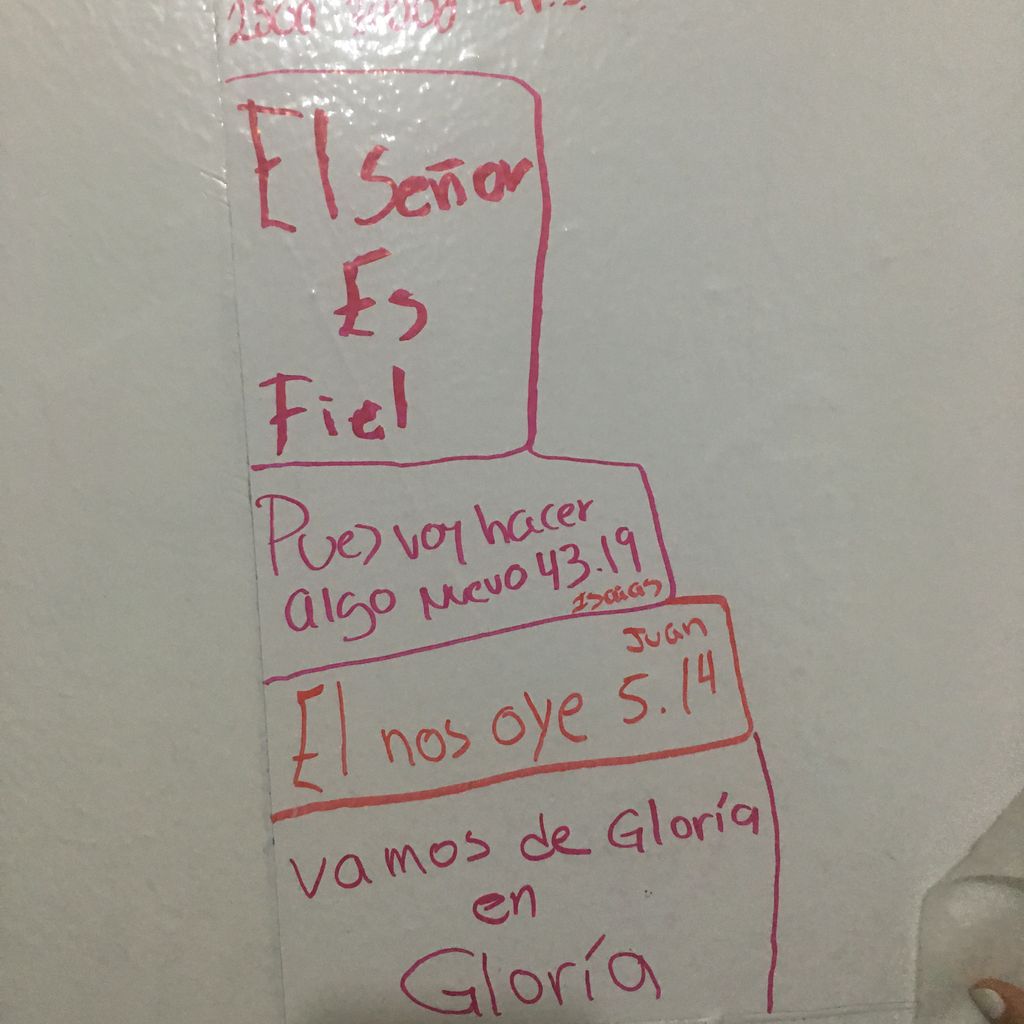 El Señor
Es
Fiel
Pues voy hacer
algo nuevo 43.19
Isaias
Juan
El nos oye 5.14
vamos de Gloría
en
Gloría